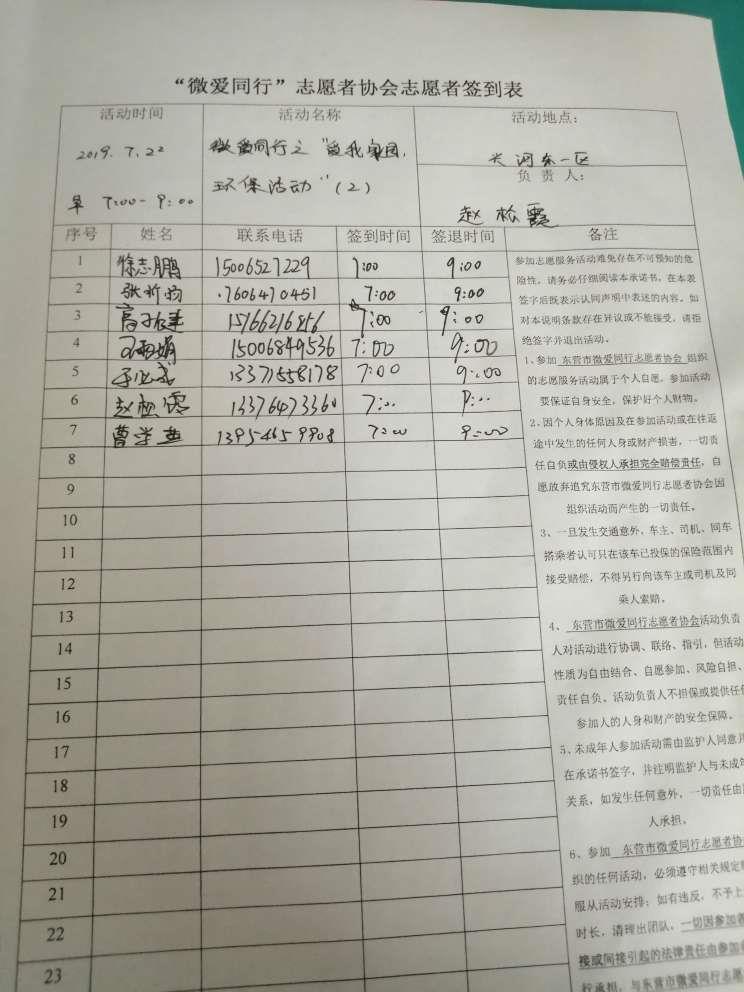 “微爱同行”志愿者协会志愿者签到表
活动时间 活动名称 活动地点：
2019.7.22 微爱同行之“爱我家园， 长河东一区
早 7:00-9:00 环保活动”（2） 负责人：
赵松霞
序号 姓名 联系电话 签到时间 签退时间 备注
1 徐志鹏 15006527229 7:00 9:00
2 7606470451 7:00 9:00
3 7:00 9:00
4 15006849536 7:00 9:00
5 13371558178 7:00 9:00
6 赵松霞 13376473360 7:00 9:00
7 曹学燕 7:00 9:00
8
9
10
11
12
13
14
15
16
17
18
19
20
21
22
23
参加志愿服务活动难免存在不可预知的危
险性，请务必仔细阅读本承诺书，在本表
签字后既表示认同声明中表述的内容。如
对本说明条款存在异议或不能接受，请拒
绝签字并退出活动。
1、参加 东营市微爱同行志愿者协会 组织
的志愿服务活动属于个人自愿，参加活动
要保证自身安全，保护好个人财物。
2、因个人身体原因及在参加活动或在往返
途中发生的任何人身或财产损害，一切责
任自负或由侵权人承担完全赔偿责任，自
愿放弃追究东营市微爱同行志愿者协会因
组织活动而产生的一切责任。
3、一旦发生交通意外，车主、司机、同车
搭乘者认可只在该车已投保的保险范围内
接受赔偿，不得另行向该车主或司机及同
乘人索赔。
4、 东营市微爱同行志愿者协会活动负责
人对活动进行协调、联络、指引，但活动
性质为自由结合、自愿参加、风险自担、
责任自负。活动负责人不担保或提供任
参加人的人身和财产的安全保障。
5、未成年人参加活动需由监护人同意并
在承诺书签字，并注明监护人与未成年
关系，如发生任何意外，一切责任由
人承担。
6、参加 东营市微爱同行志愿者协
织的任何活动，必须遵守相关规定
服从活动安排；如有违反，不予上
时长，清理出团队，一切因参加者
接或间接引起的法律责任由参加
行承担，与东营市微爱同行志愿